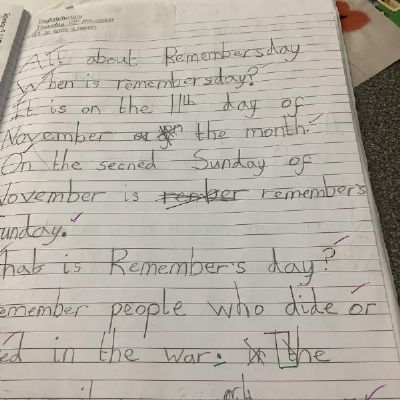 English/History
Thursday 10th November
to write a report
All about Remembersday
When is remembersday?
It is on the 11th day of
November the month.
On the secned Sunday of
November is rember remember's
unday.
hat is Remember's day?
emember people who dide or
ed in the war. The